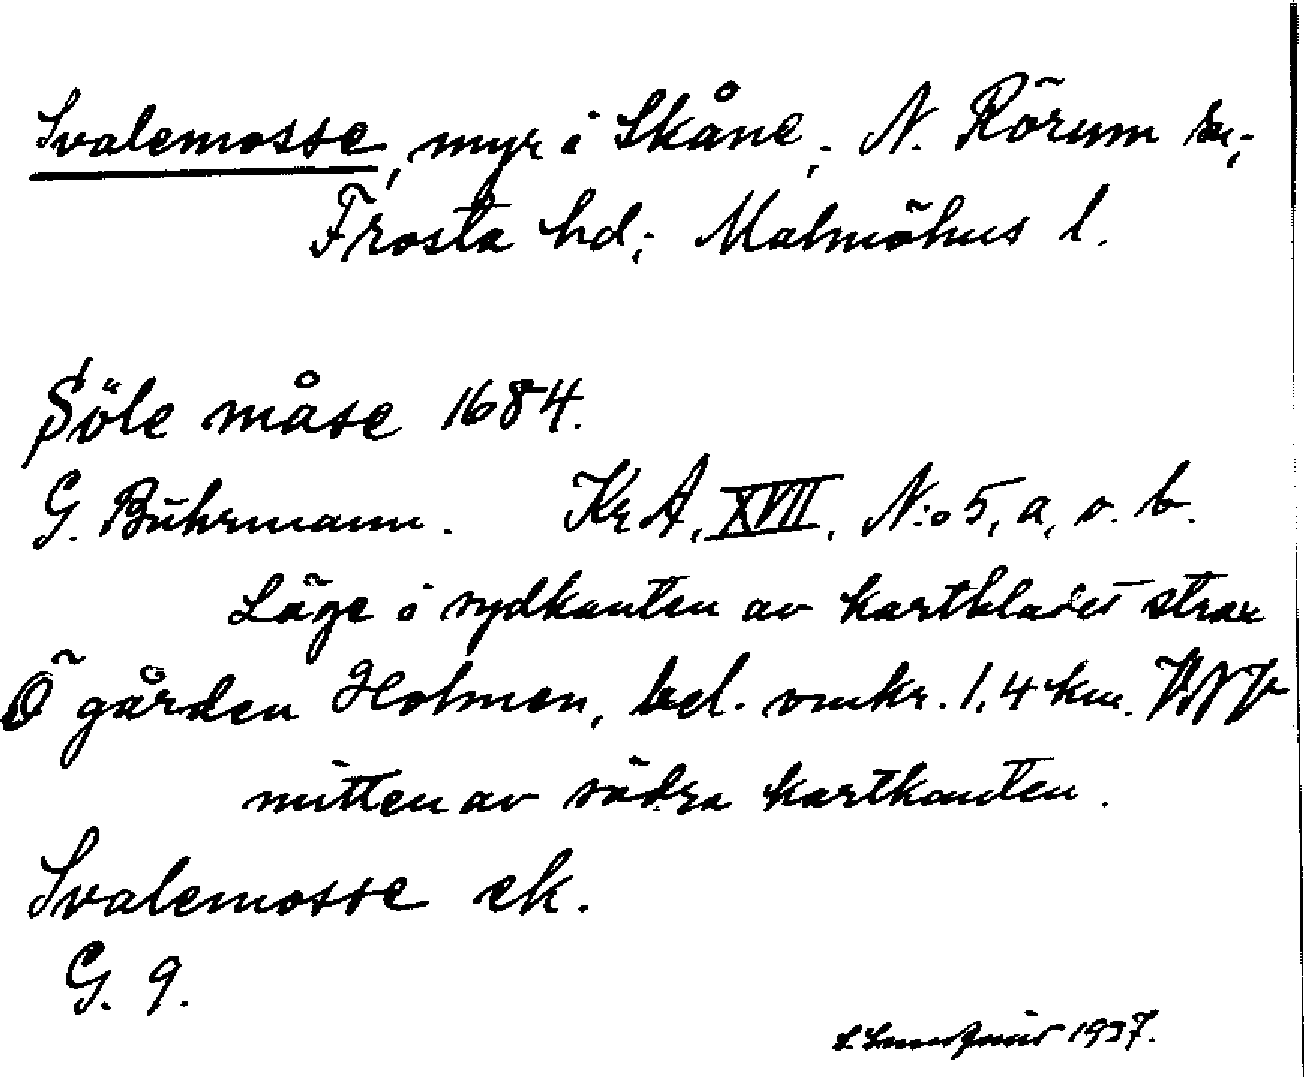 Svalemosse, myr i Skåne; N. Rörum sn;
Frosta hd; Malmöhus l.
Söle måse 1684.
G. Buhrmann. KrA, XVII, N:o 5, a, o. b.
Läge i sydkanten av kartbladet strax
Ö gården Holmen, bel. omkr. 1,4 km.
mitten av södra kartkanten.
Svalemosse ek.
G. 9.
1937.